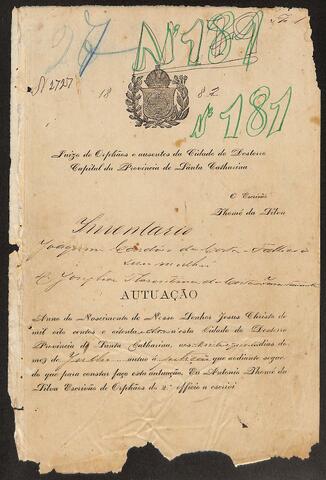 27
Nº 189
Fl 1
N 2727
18 82
Nº 181
Juizo de Orphãos e ausentes da Cidade do Desterro
Capital da Provincia de Santa Catharina
O Escrivão
Thomé da Silva
Inventario
Joaquim da Costa
sua mulher
AUTUAÇÃO
Anno do Nascimento de Nosso Senhor Jesus Christo de
mil oito centos e oitenta n'esta Cidade do Desterro
Provincia de Santa Catharina, aos dias do
mez de Julho autuo a petição que adiante segue
do que para constar faço esta autuação. Eu Antonio Thomé da
Silva Escrivão de Orphãos do 2º officio a escrevi